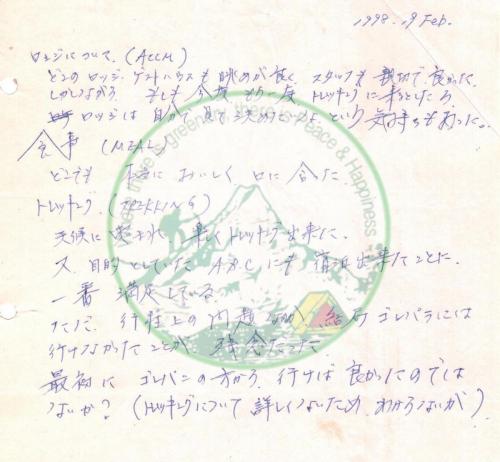 1998. 19 Feb.
ロッジについて. (ACCM)
どこのロッジ. ゲストハウスも眺めが良く、スタッフも親切で良かった.
しかしながら、もしも今度もう一度トレッキングに来るとしたら
ロッジは自分で見て決めたいという気持ちもあった。
食事 (MEAL)
どこでも 本当においしく口に合った.
トレッキング. (TREKKING)
天候に恵まれ 楽しくトレッキング出来た.
又、目的としていた A.B.C にも宿泊出来たことに.
一番満足している.
ただ、行程上の問題なのか、結局ゴレパニには
行けなかったことが、残念だった
最初に ゴレパニの方から行けば良かったのでは
ないか? (トレッキングについて詳しくないため わからないが)
Where there is green there is Peace & Happiness